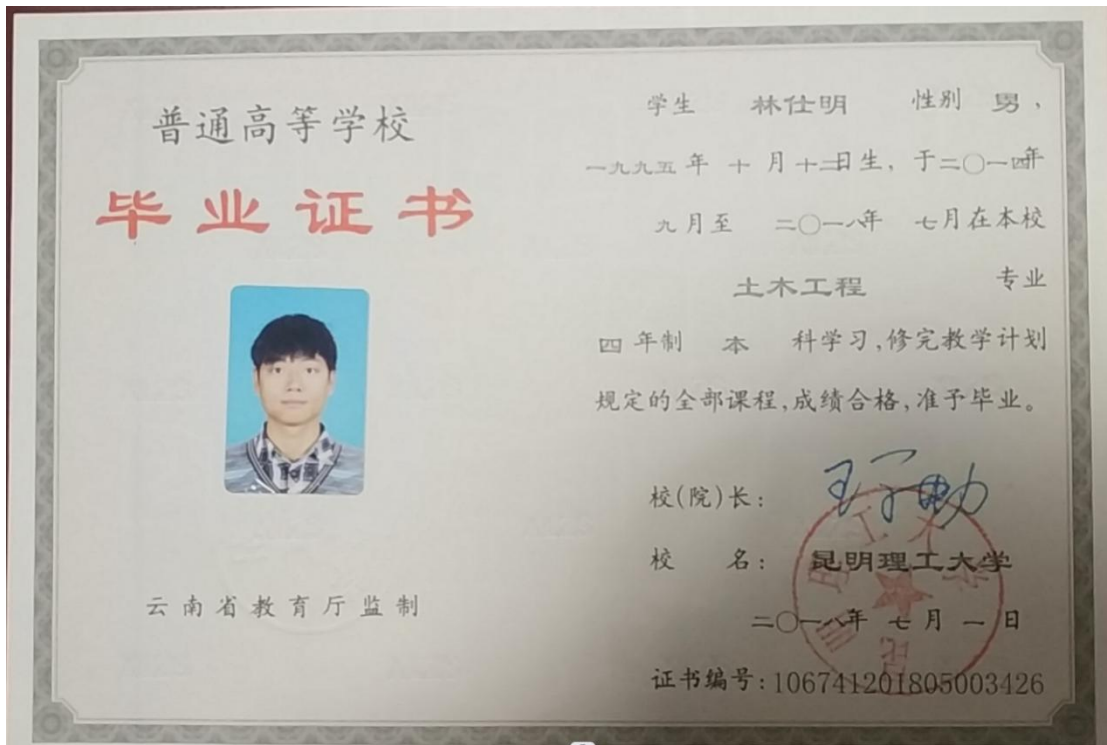 普通高等学校
毕业证书
云南省教育厅监制
学生 林仕明 性别 男，
一九九五年 十 月十二日生，于二〇一四年
九月至 二〇一八年 七月在本校
土木工程 专业
四年制 本 科学习，修完教学计划
规定的全部课程，成绩合格，准予毕业。
校（院）长：
校 名：昆明理工大学
二〇一八年 七 月 一 日
证书编号：106741201805003426